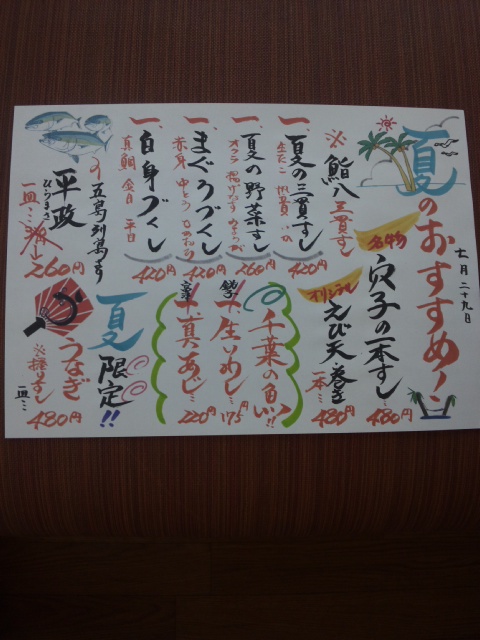 夏のおすすめ!
七月二十九日
※鮨八三貫すし
一、夏の三貫すし
420円
一、夏の野菜すし
260円
一、まぐろづくし
赤身
420円
一、白身づくし
真鯛 金目 平目
420円
五島列島産
平政
ひらまさ
一皿…
260円
名物
穴子の一本すし…
480円
オリジナル
えび天巻き
一本…
480円
千葉の魚!!
銚子
一、生いわし…
175円
一、真あじ…
220円
夏
限定!!
うなぎ
一皿…
480円